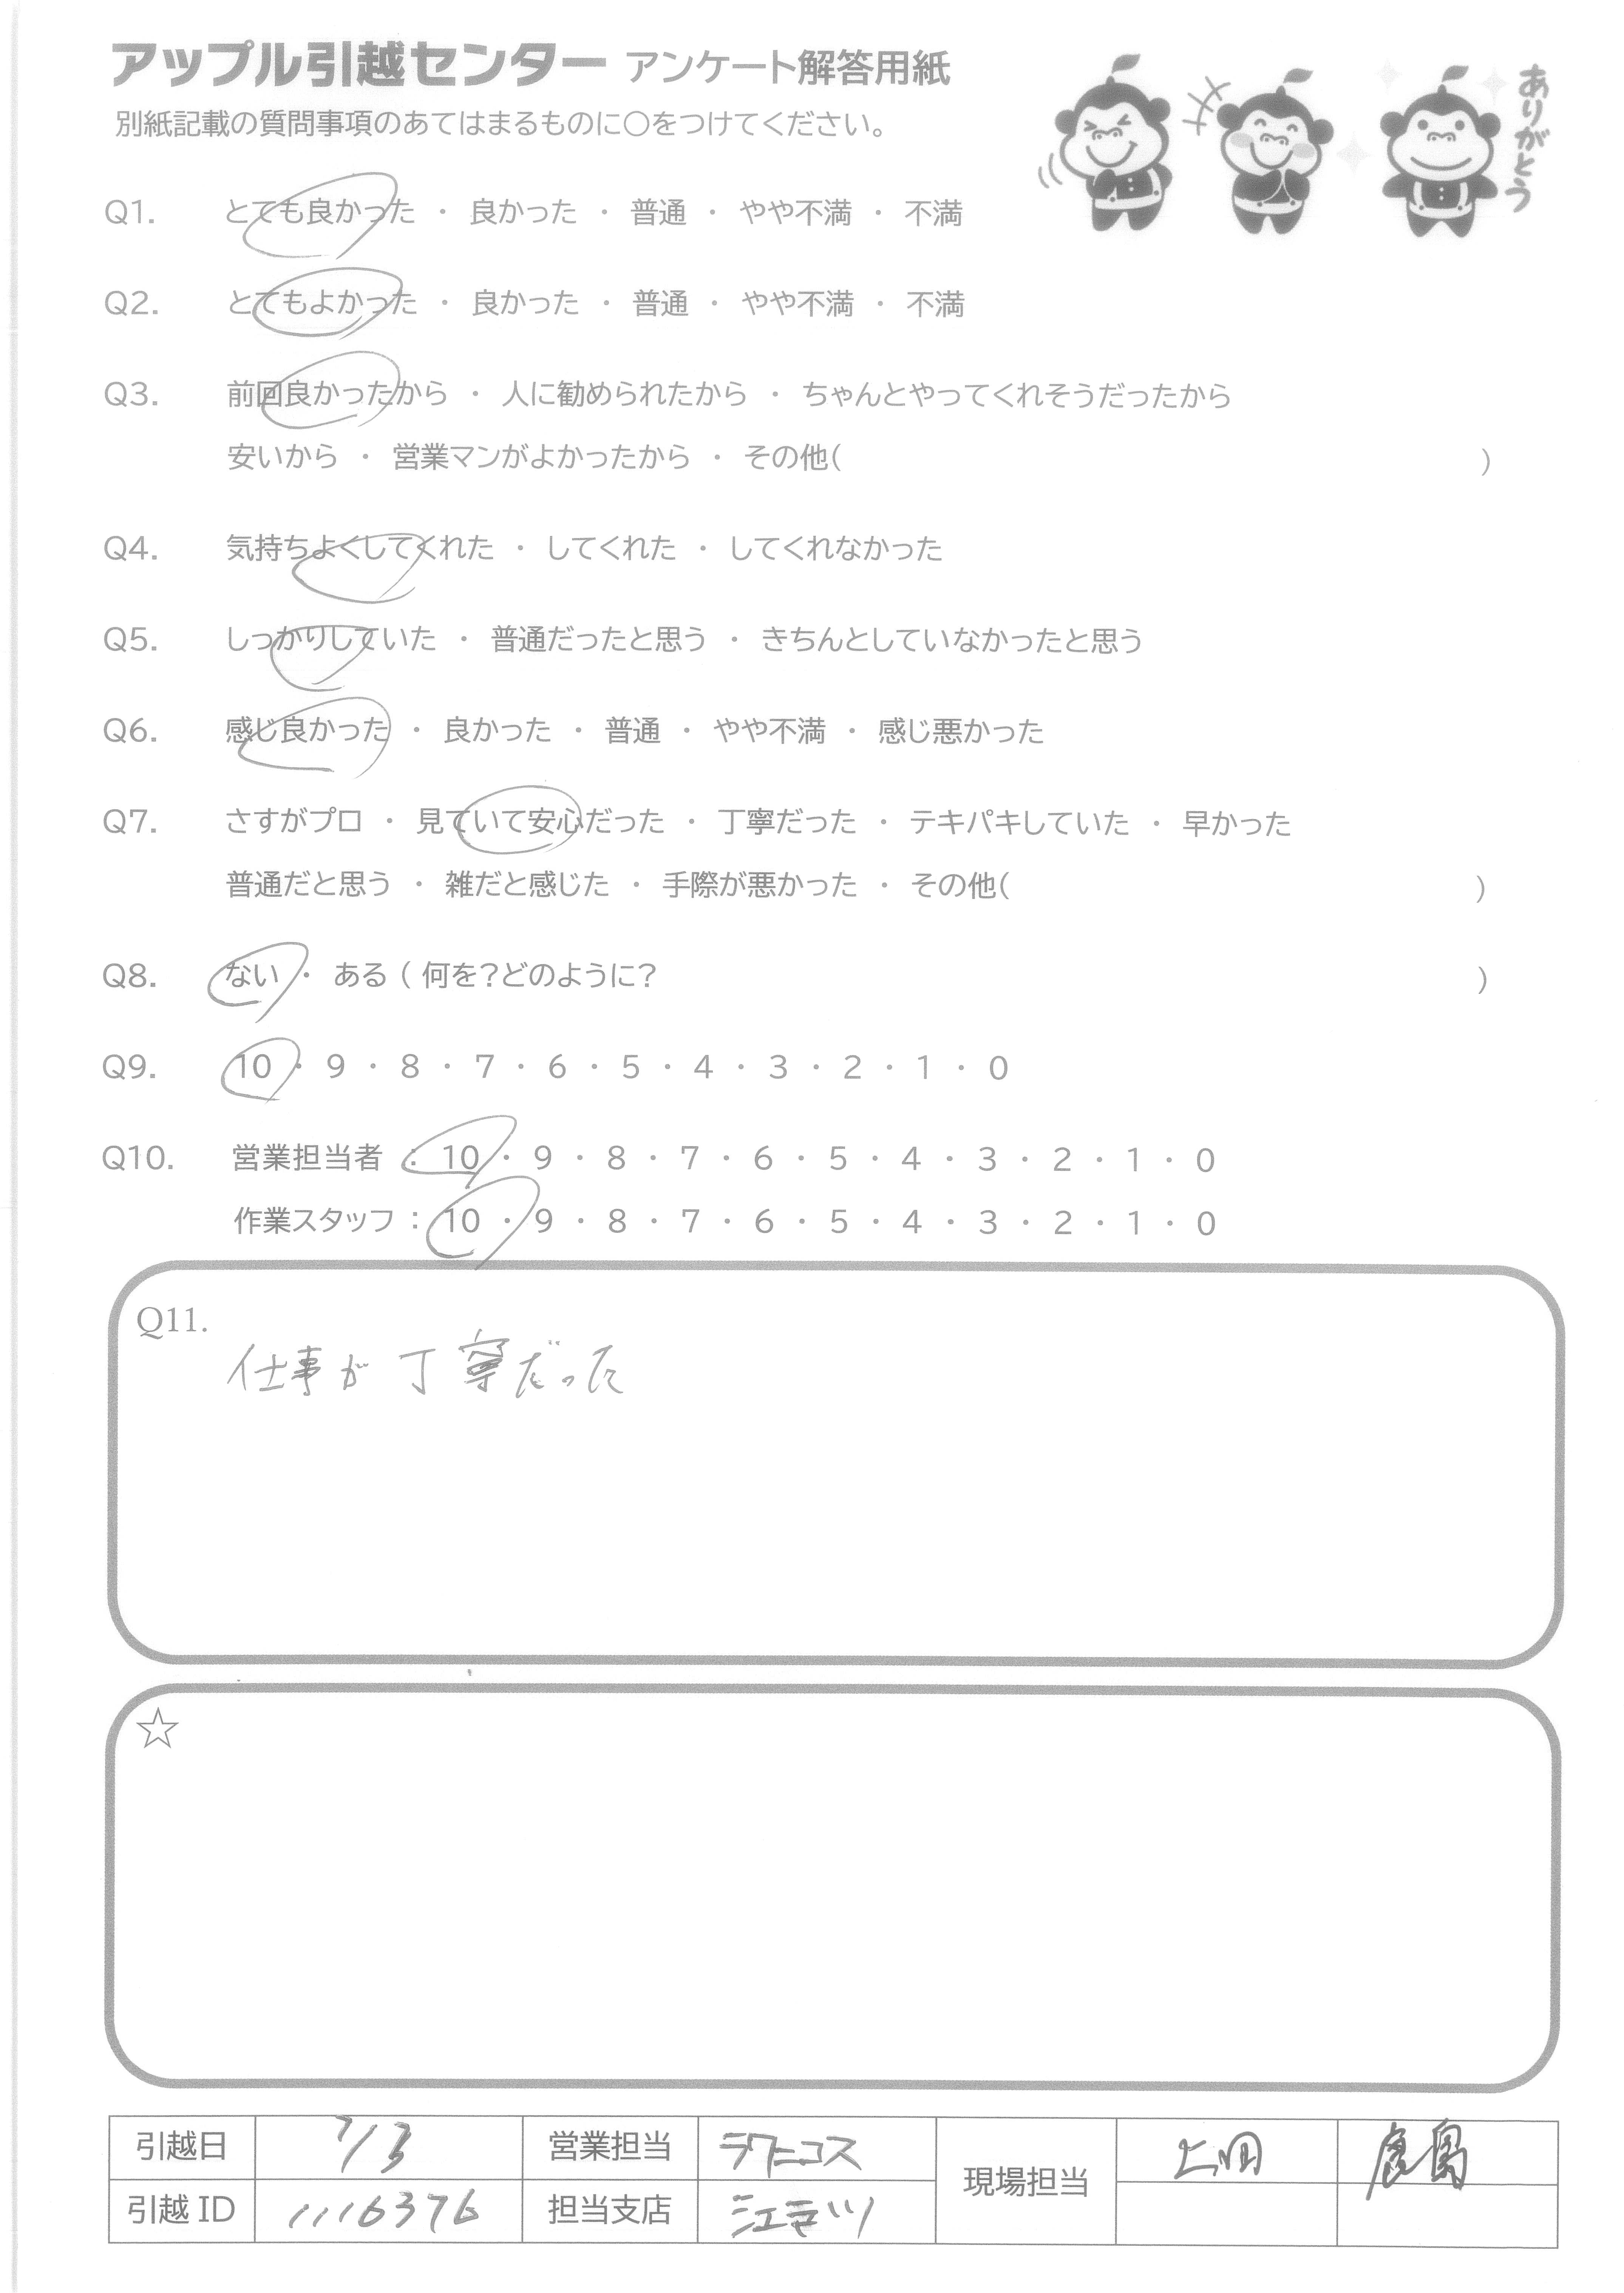 アップル引越センター アンケート解答用紙
ありがとう
別紙記載の質問事項のあてはまるものに○をつけてください。
Q1. とても良かった ・ 良かった ・ 普通 ・ やや不満 ・ 不満
Q2. とてもよかった ・ 良かった ・ 普通 ・ やや不満 ・ 不満
Q3. 前回良かったから ・ 人に勧められたから ・ ちゃんとやってくれそうだったから
安いから ・ 営業マンがよかったから ・ その他( )
Q4. 気持ちよくしてくれた ・ してくれた ・ してくれなかった
Q5. しっかりしていた ・ 普通だったと思う ・ きちんとしていなかったと思う
Q6. 感じ良かった ・ 良かった ・ 普通 ・ やや不満 ・ 感じ悪かった
Q7. さすがプロ ・ 見ていて安心だった ・ 丁寧だった ・ テキパキしていた ・ 早かった
普通だと思う ・ 雑だと感じた ・ 手際が悪かった ・ その他( )
Q8. ない ・ ある ( 何を?どのように? )
Q9. 10 ・ 9 ・ 8 ・ 7 ・ 6 ・ 5 ・ 4 ・ 3 ・ 2 ・ 1 ・ 0
Q10. 営業担当者 : 10 ・ 9 ・ 8 ・ 7 ・ 6 ・ 5 ・ 4 ・ 3 ・ 2 ・ 1 ・ 0
作業スタッフ : 10 ・ 9 ・ 8 ・ 7 ・ 6 ・ 5 ・ 4 ・ 3 ・ 2 ・ 1 ・ 0
Q11.
仕事が丁寧だった
☆
引越日 7/3 営業担当 現場担当 上田 鹿島
引越ID 1116376 担当支店